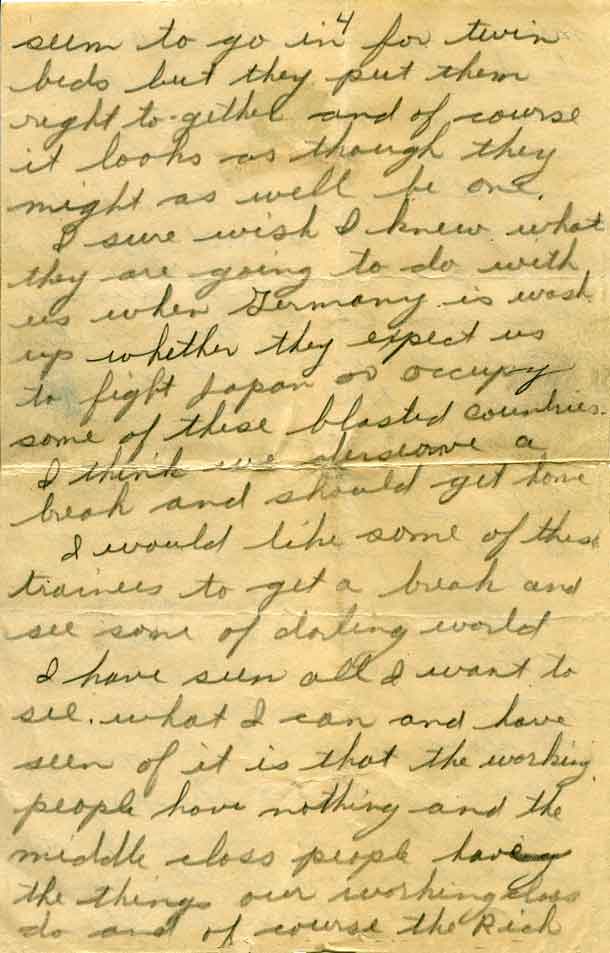 4
seem to go in for twin
beds but they put them
right to-gether and of course
it looks as though they
might as well be one.
I sure wish I knew what
they are going to do with
us when Germany is wash
up whether they expect us
to fight Japan or occupy
some of these blasted countries.
I think we deserve a
break and should get home
I would like some of these
trainees to get a break and
see some of darling world
I have seen all I want to
see. what I can and have
seen of it is that the working
people have nothing and the
middle class people have
the things our working class
do and of course the Rich